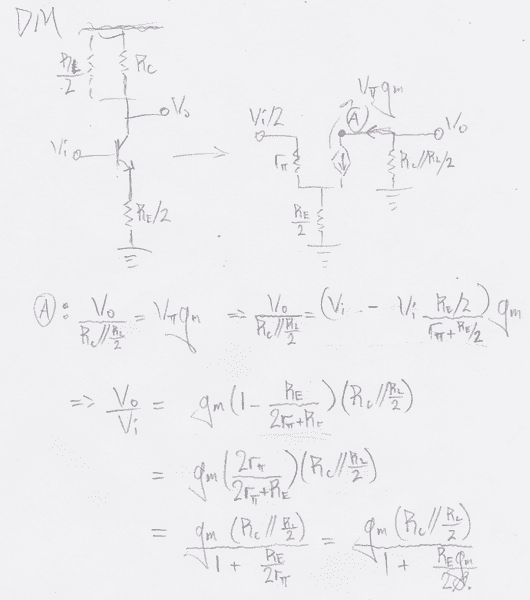 DM
R_L/2
R_C
V_o
V_i
R_E/2
V_i/2
r_π
R_E/2
A
V_π g_m
V_o
R_C//R_L/2
A: V_o/(R_C//R_L/2) = V_π g_m => V_o/(R_C//R_L/2) = (V_i - V_i (R_E/2)/(r_π+R_E/2)) g_m
=> V_o/V_i = g_m (1 - R_E/(2r_π+R_E)) (R_C//R_L/2)
= g_m (2r_π/(2r_π+R_E)) (R_C//R_L/2)
= g_m (R_C//R_L/2)/(1 + R_E/2r_π) = g_m (R_C//R_L/2)/(1 + R_E g_m/2β)